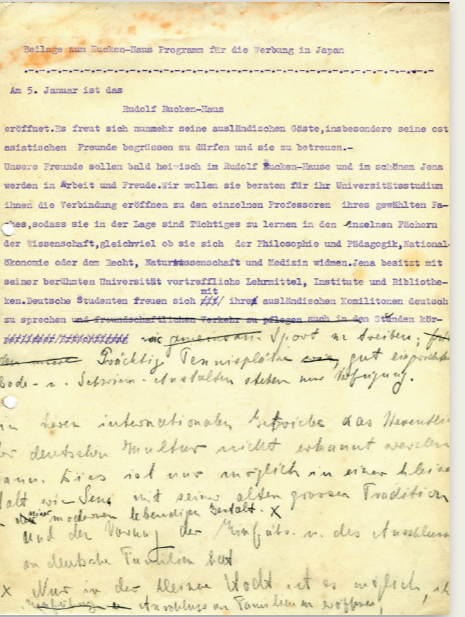 Beilage zum Eucken-Haus Programm für die Werbung in Japan
Am 5. Januar ist das
Rudolf Eucken-Haus
eröffnet.Es freut sich nunmehr seine ausländischen Gäste,insbesondere seine ost
asiatischen Freunde begrüssen zu dürfen und sie zu betreuen.-
Unsere Freunde sollen bald heimisch im Rudolf Eucken-Hause und im schönen Jena
werden in Arbeit und Freude.Wir wollen sie beraten für ihr Universitätsstudium
ihnen die Verbindung eröffnen zu den einzelnen Professoren ihres gewählten Fa-
ches,sodass sie in der Lage sind Tüchtiges zu lernen in den einzelnen Fächern
der Wissenschaft,gleichviel ob sie sich der Philosophie und Pädagogik,National
ökonomie oder dem Recht, Naturwissenschaft und Medizin widmen.Jena besitzt mit
seiner berühmten Universität vortreffliche Lehrmittel, Institute und Bibliothe-
mit
ken.Deutsche Studenten freuen sich ihren ausländischen Komilitonen deutsch
zu sprechen und freundschaftlichen Verkehr zu pflegen auch in den Stunden kör-
Sport zu treiben;
Prächtige Tennisplätze gut eingerichtete
Bade- u. Schwimm-Anstalten stehen zur Verfügung.
internationalen das Wesentliche
der deutschen Kultur nicht erkannt werden
kann. Dies ist nur möglich in einer kleinen
Stadt wie Jena mit seiner alten grossen Tradition
modernen lebendigen Gestalt. X
und der Vorzug der Einführ. u. des Anschlusses
an deutsche Familien hat
X Nur in der kleinen Stadt ist es möglich,
Anschluss an Familien eröffnen,